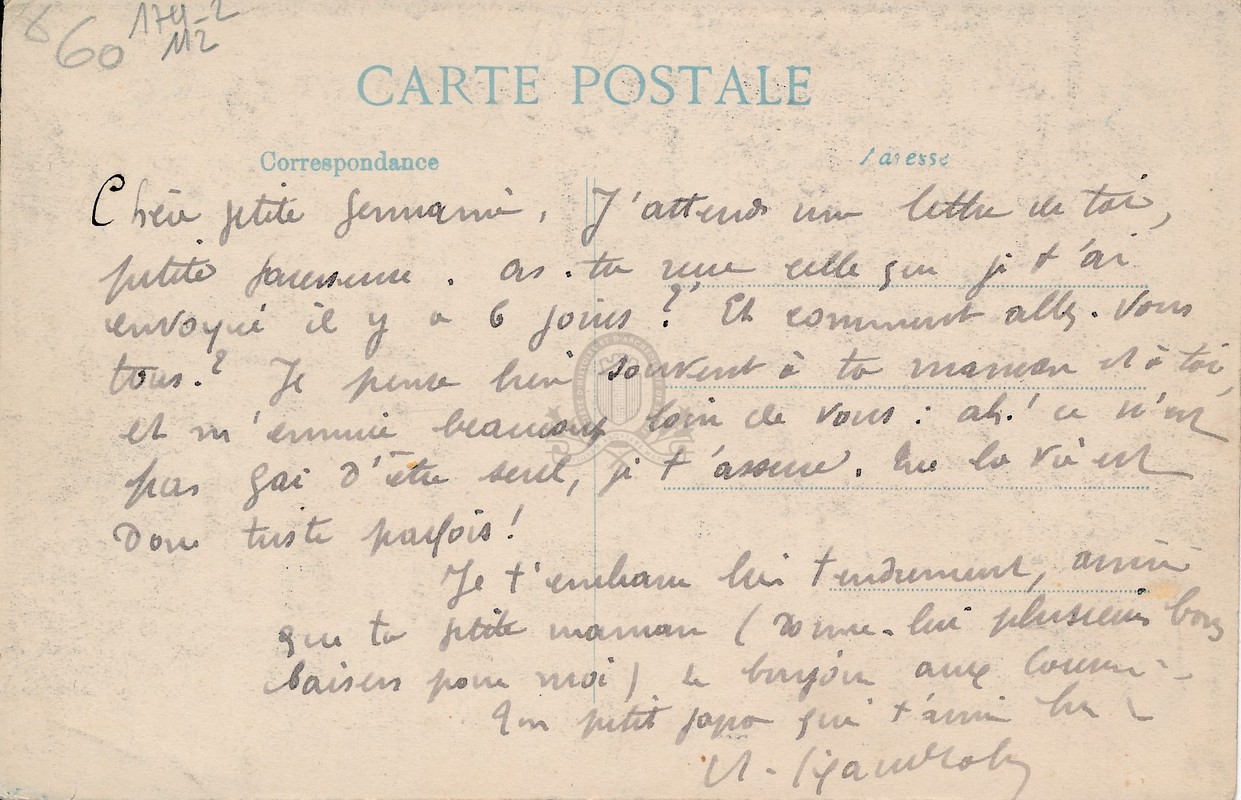 60 174-2
112
CARTE POSTALE
Correspondance
Adresse
Chère petite Germaine, J'attends une lettre de toi,
petite paresseuse. as-tu reçue celle que je t'ai
envoyée il y a 6 jours ? Et comment allez-vous
tous ? Je pense bien souvent à ta maman et à toi,
et m'ennuie beaucoup loin de vous : ah ! ce n'est
pas gai d'être seul, je t'assure. Que la vie est
donc triste parfois !
Je t'embrasse bien tendrement, ainsi
que ta petite maman (donne-lui plusieurs bons
baisers pour moi) le bonjour aux
Ton petit papa qui t'aime bien